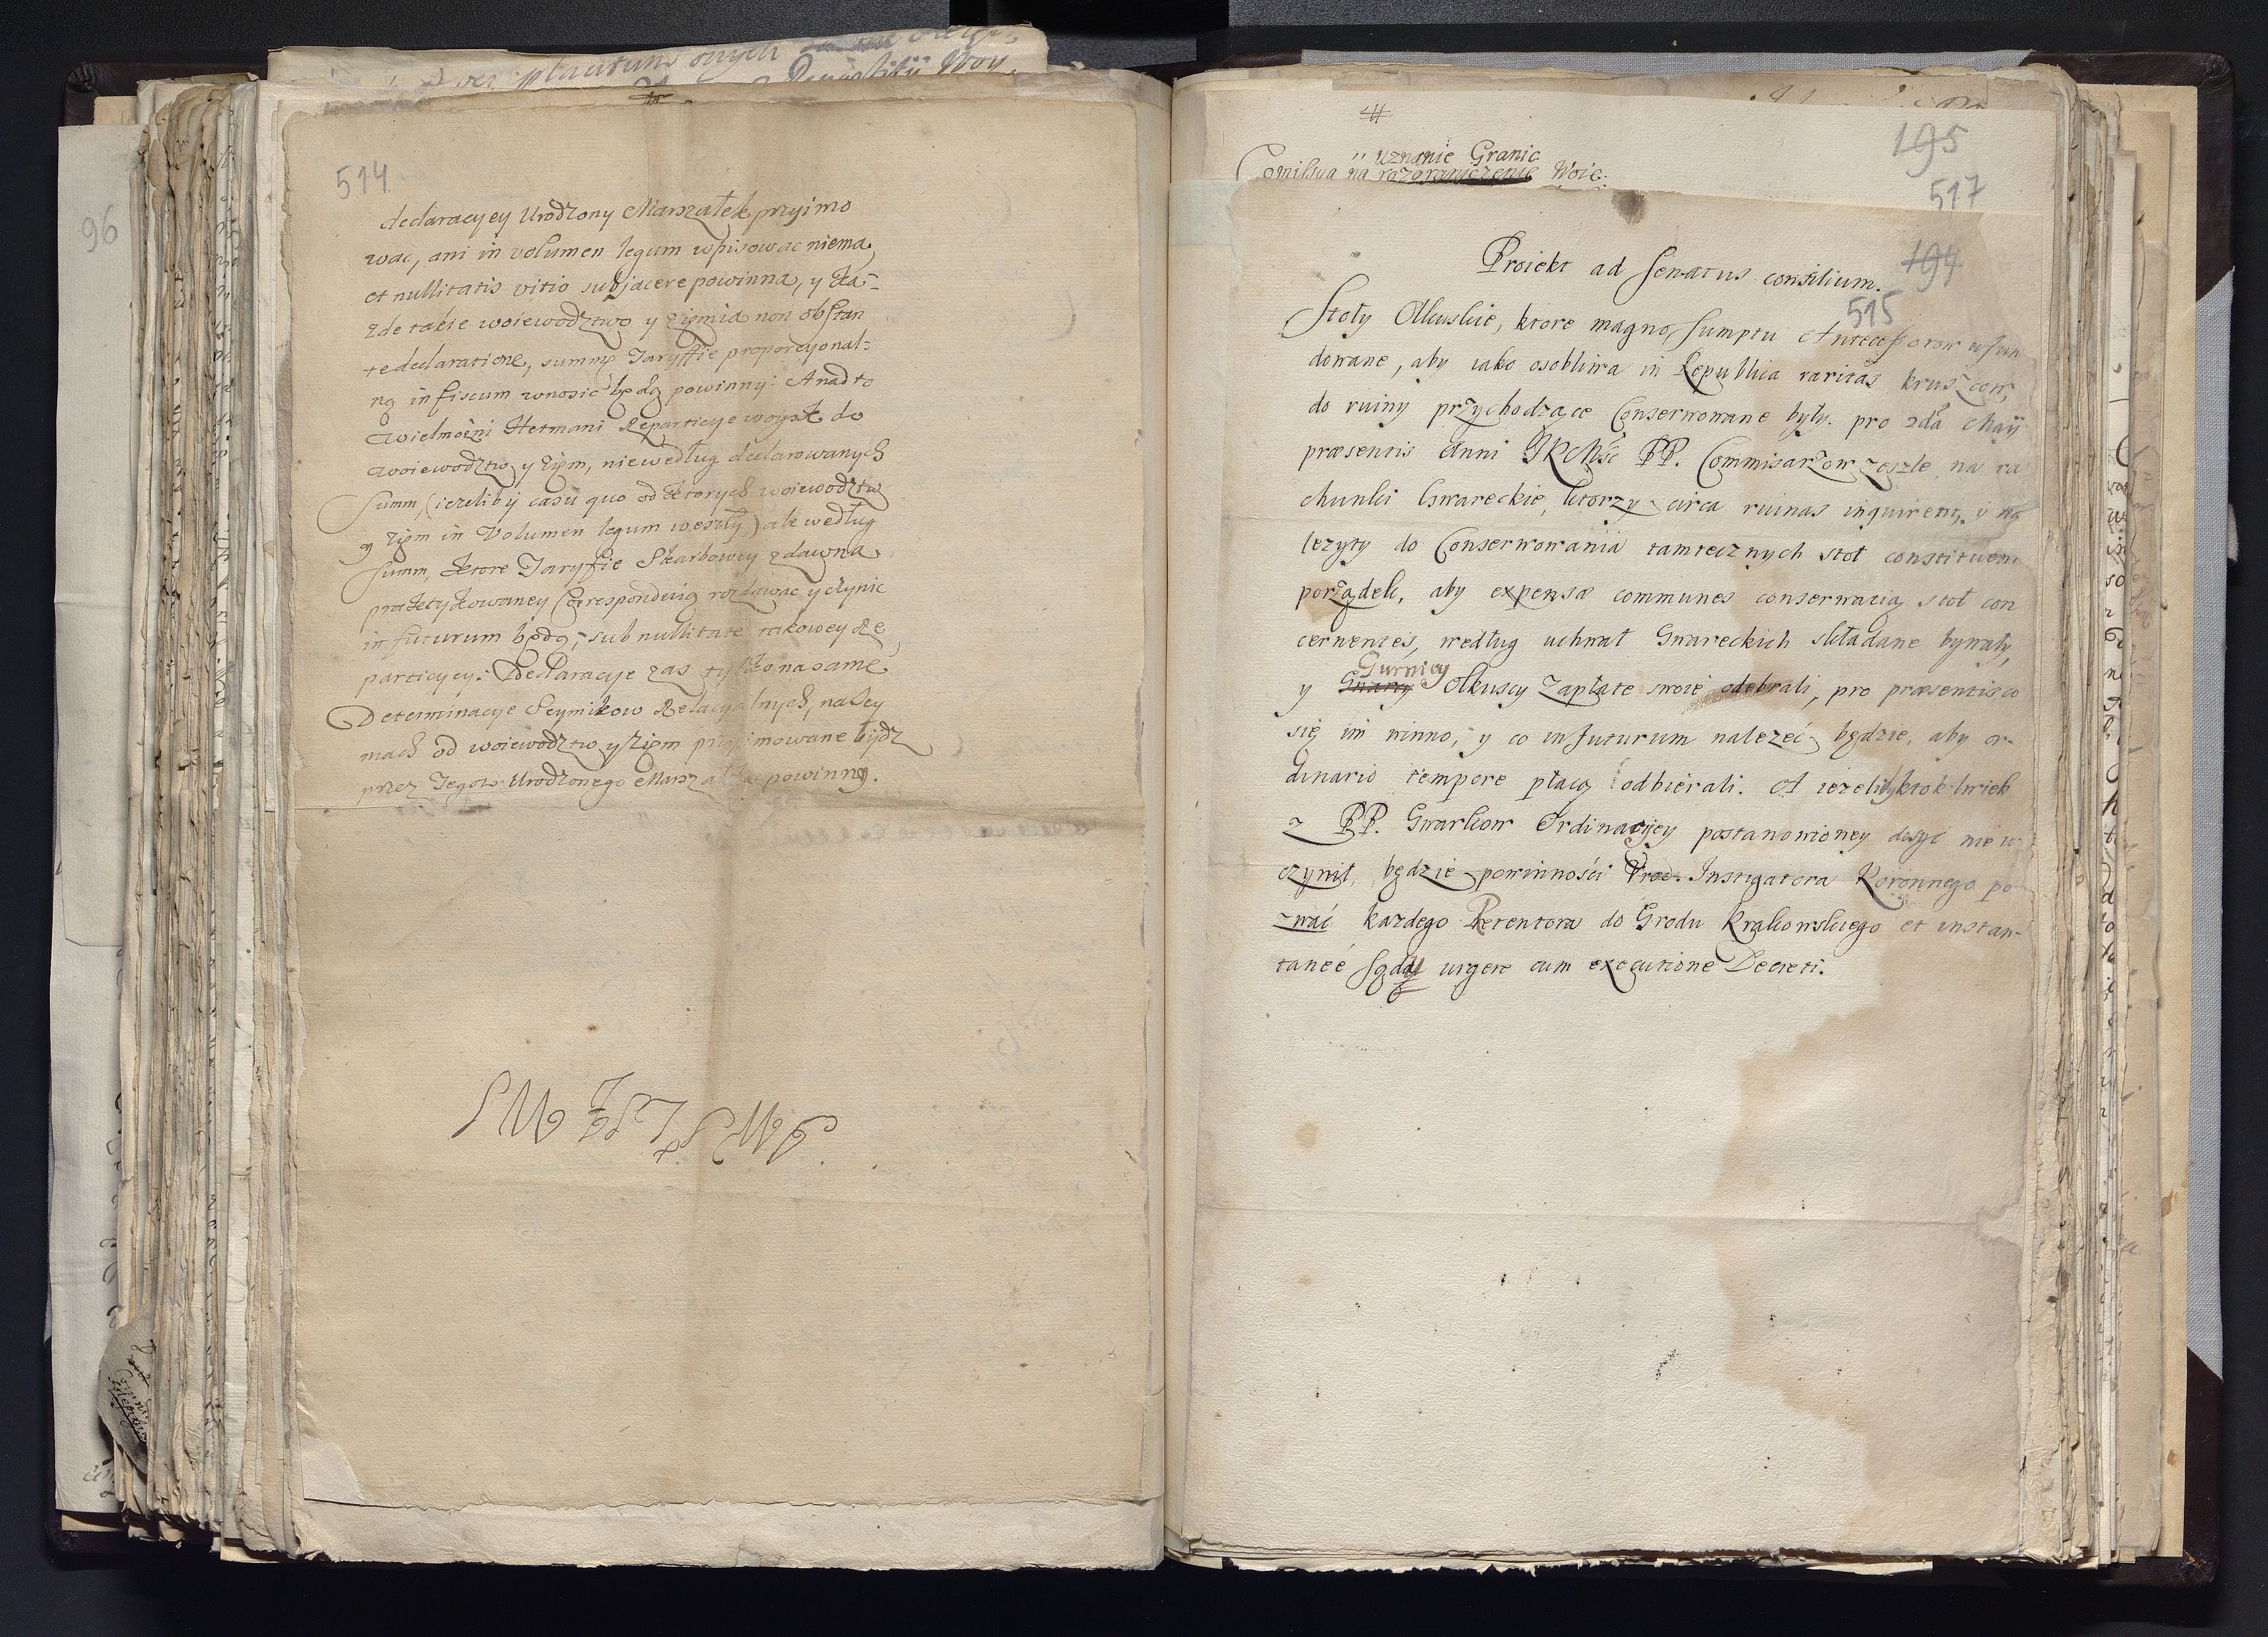 514
declaracyey Urodzony Marszałek przyimo
wać, ani in volumen legum wpisować niema,
et nullitatis vitio subjacere powinna, y ka-
żde takie woiewodztwo y ziemia non obstan
te declaratione, summę Taryffie proporcyonal-
ną in fiscum wnosić będą powinny: A nadto
Wielmożni Hetmani Reparticye woysk do
woiewodztw y ziem, niewedług declarowanych
Summ, (ieżeliby casu quo od ktorych woiewodztw
y ziem in Volumen legum weszły) ale według
Summ, ktore Taryfie Skarbowey zdawna
praktykowaney Correspondeią rozdawać y czynic
in futurum będą, sub nullitate takowey Re
particyey: Declaracye zas tylko na same
Determinacye Seymikow Relacyalnych, na Sey
mach od woiewodztw y Ziem przyimowane bydz
przez Tegoż Urodzonego Marszałka powinny.
96
195
uznanie Granic
Comissya na rozgraniczenie Woie:
517
Proiekt ad Senatus consilium.
194
515
Stoły Olkuskie, ktore magno Sumptu Antecessorow ufun
dowane, aby iako osobliwa in Republica raritas kruszcow,
do ruiny przychodzące Conserwowane były. pro 2da Maij
præsentis Anni JKMść PP. Commisarzow zeszle, na ra
chunki Gwareckie, ktorzy circa ruinas inquirent, y na
lezyty do Conserwowania tamtecznych stoł constituent
porządek, aby expensæ communes conserwatią stoł con
cernentes, według uchwał Gwareckich składane bywały,
Gurnicy
y Gwarcy Olkuscy Zapłate swoie odebrali, pro præsenti co
się im winno, y co in futurum należeć będzie, aby or-
dinario tempore płacą odbierali. A ieżeliby ktokolwiek
z PP. Gwarkow Ordinacyey postanowioney dosyć nie u
czynił, będzie powinności Urod. Instigatora Koronnego po
zwać kazdego Retentora do Grodu Krakowskiego et instan-
taneé Sądy urgere cum executione Decreti.